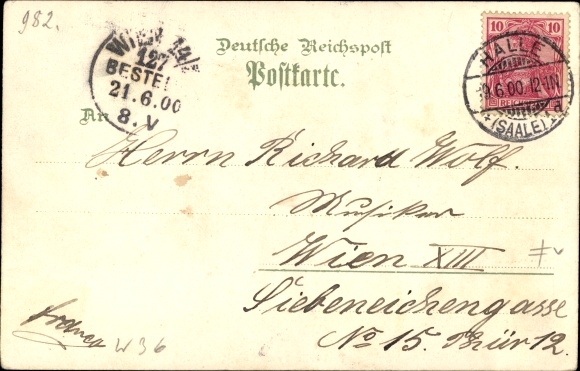 982.
Wien 14/2
127
BESTELLT
21.6.00
8.V
Deutsche Reichspost
Postkarte.
10 10
HALLE
19.6.00.12-1N
*(SAALE)* a
An
Herrn Richard Wolf.
Musiker
Wien XIII
Siebeneichengasse
No 15. Thür 12.
W36